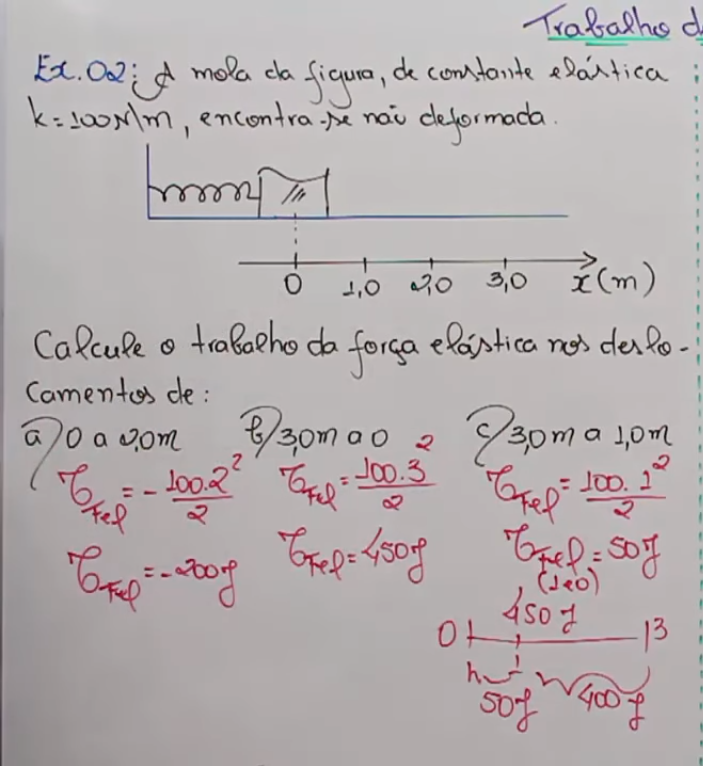 Trabalho d
Ex.02: A mola da figura, de constante elástica
k=100N/m, encontra-se não deformada.
0 1,0 2,0 3,0 x(m)
Calcule o trabalho da força elástica nos deslo-
camentos de:
a) 0 a 2,0m b) 3,0m a 0 c) 3,0m a 1,0m
τFel = -100.2²/2 τFel = 100.3²/2 τFel = 100.1²/2
τFel = -200J τFel = 450J τFel = 50J
(1→0)
450J
0 3
50J 400J